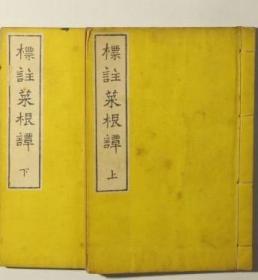 標註菜根譚 上
標註菜根譚 下